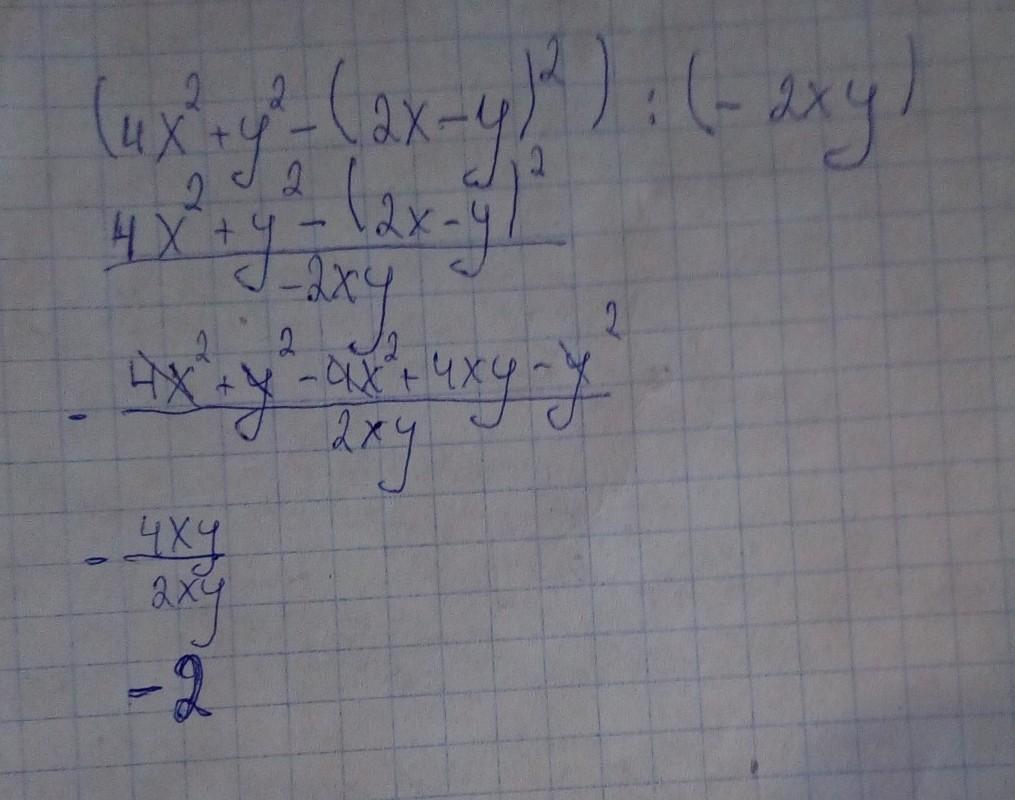 (4x²+y²-(2x-y)²):(-2xy)
4x²+y²-(2x-y)²
-2xy
- 4x²+y²-4x²+4xy-y²
2xy
- 4xy
2xy
-2